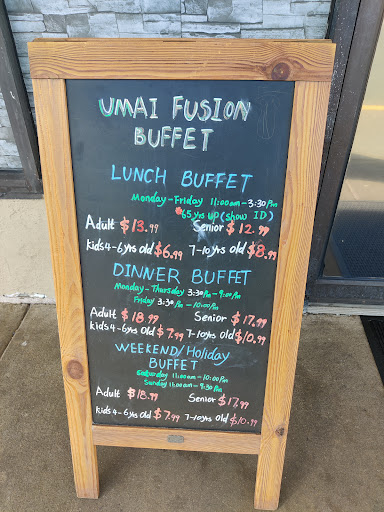 UMAI FUSION
BUFFET
LUNCH BUFFET
Monday - Friday 11:00am - 3:30pm
*65 yrs up (show ID)
Adult $13.99 Senior $12.99
kids 4-6 yrs old $6.99 7-10 yrs old $8.99
DINNER BUFFET
Monday - Thursday 3:30pm - 9:00pm
Friday 3:30pm - 10:00pm
Adult $18.99 Senior $17.99
kids 4-6 yrs old $7.99 7-10 yrs old $10.99
WEEKEND/Holiday
BUFFET
Saturday 11:00am - 10:00pm
Sunday 11:00am - 9:30pm
Adult $18.99 Senior $17.99
kids 4-6 yrs old $7.99 7-10 yrs old $10.99